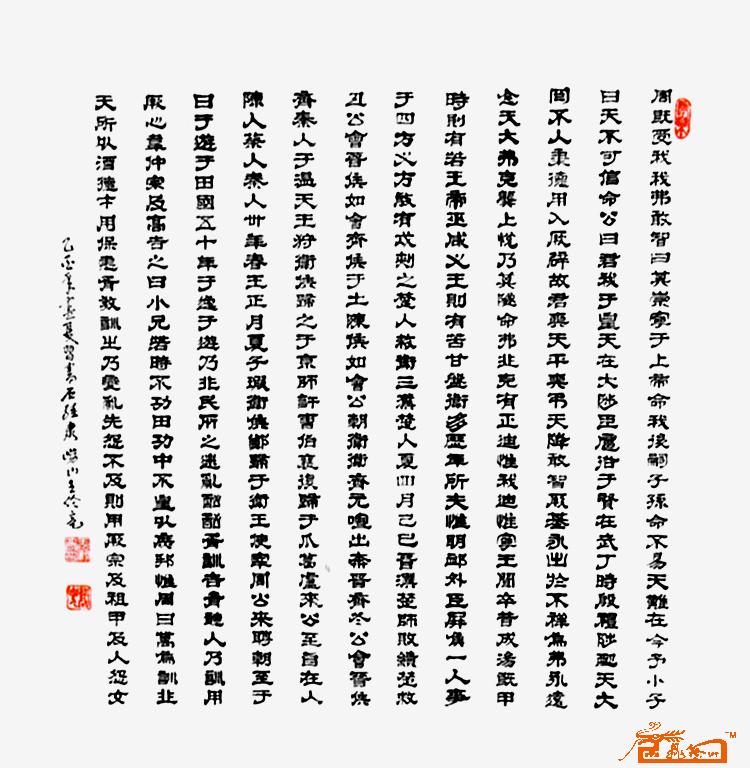 周既受我我弗敢智曰其崇寧于上帝命我後嗣子孫命不易天難在今予小子
曰天不可信命公曰君我于皇天在大陟臣扈治于賢在武丁時殷禮陟配天大
同不人秉德用入厥辟故君奭天平奭弔天降敢智厥基永出於不祥為弗永遠
念天大弗克襲上忱乃其隧命弗非克有正迪惟我迪惟寧王開卒昔成湯既甲
時則有若王帝巫咸乂王則有若甘盤衛多歷年所夫惟明卹外臣屏侯一人事
于四方乂方敢有式刺之楚人救衛三楚人夏四月己巳晉楚師敗績楚救
丑公會晉侯如會齊侯于土陳侯如會公朝衛衛齊元咺出奔晉齊冬公會晉侯
齊秦人于溫天王狩衛侯歸之于京師許曹伯襄復歸于介葛盧來公至自在人
陳人蔡人秦人卅年春王正月夏予瑕衛侯鄭歸于衛王使宰周公來聘朝至于
曰于遊于田國五十年于逸于遊乃非民所之迷亂酗酗胥訓告胥聽人乃訓用
厥心韋仲宗及高告之曰小兄若時不功田功中不皇以庶邦惟周曰篙為訓非
天所以酒德才用保惠胥教訓出乃變亂先怨不及則用厥宗及祖甲及人怨女